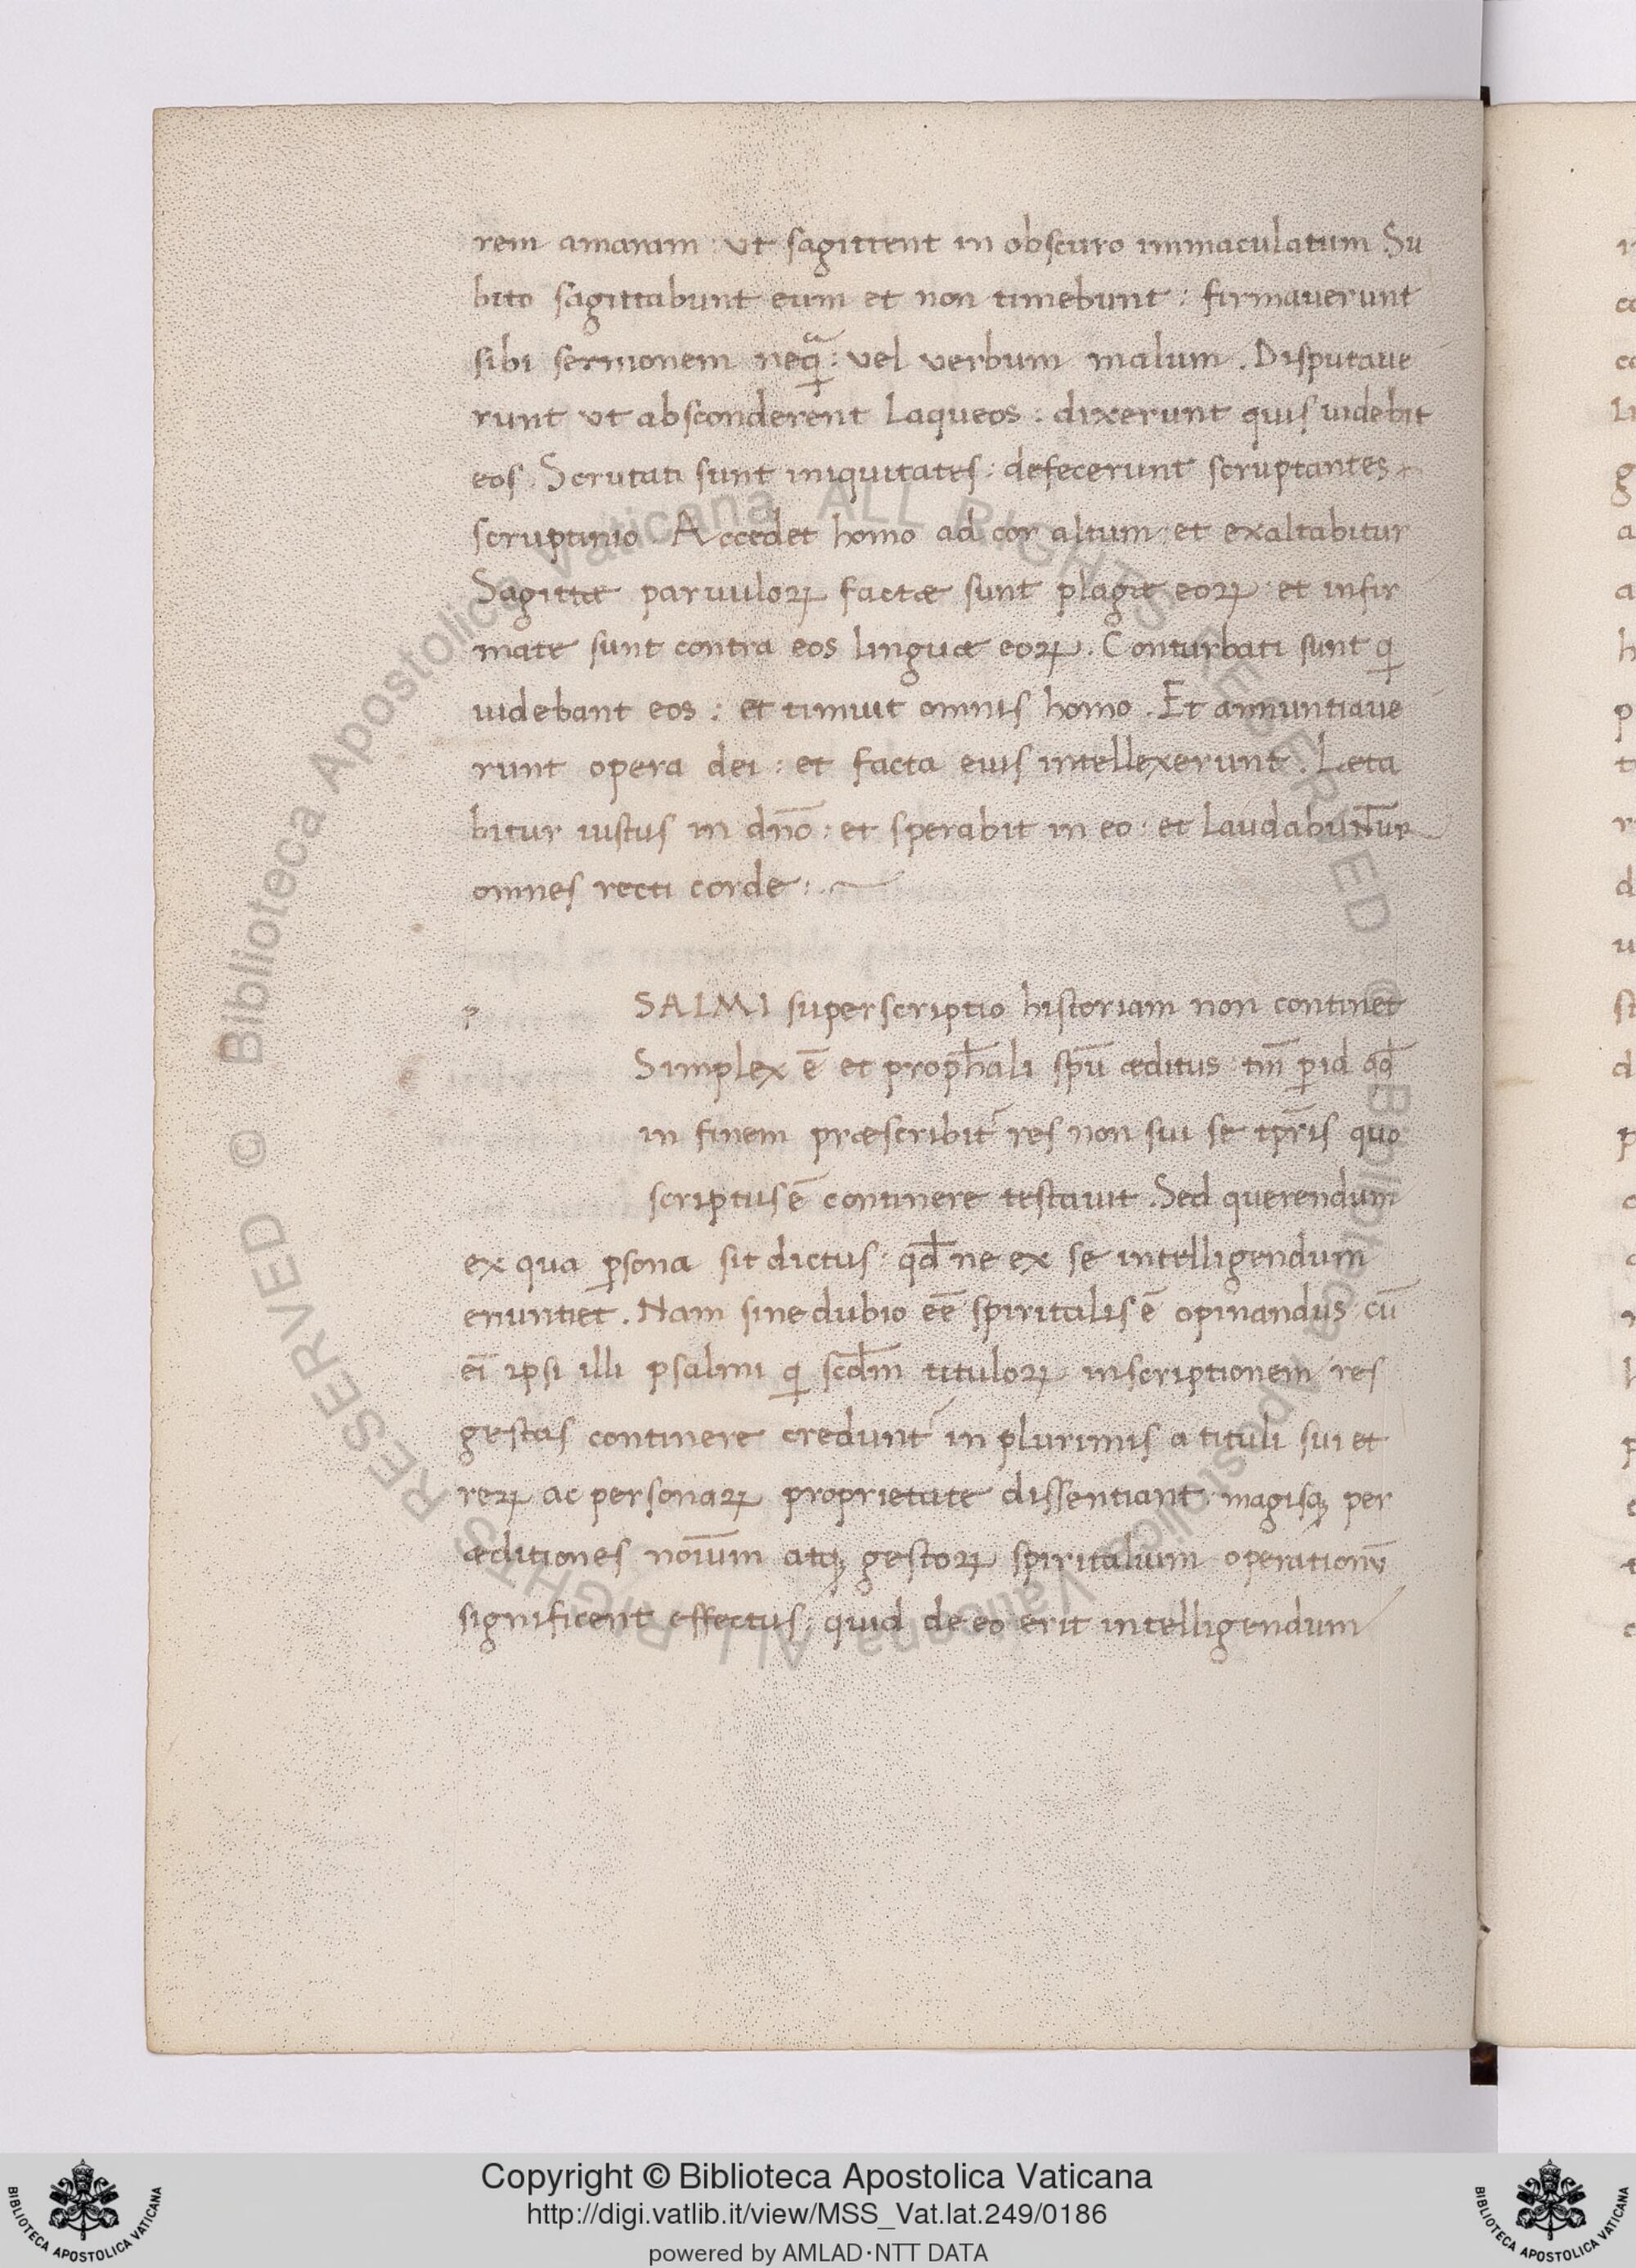 rem amaram : vt sagittent in obscuro immaculatum Su
bito sagittabunt eum et non timebunt : firmauerunt
sibi sermonem neqᷓ : vel verbum malum . Disputaue
runt vt absconderent laqueos : dixerunt quis uidebit
eos . Scrutati sunt iniquitates : defecerunt scruptantes
scruptinio Accedet homo ad cor altum : et exaltabitur
Sagittæ paruuloꝝ factæ sunt plagæ eoꝝ : et infir
mate sunt contra eos linguæ eoꝝ . Conturbati sunt q̇
uidebant eos : et timuit omnis homo . Et annuntiaue
runt opera dei : et facta eius intellexerunt . Læta
bitur iustus in dn̄o : et sperabit in eo : et laudabuntur
omnes recti corde :
p SALMI superscriptio historiam non continet
Simplex ē et proph̄ali spū æditus tm̄ ꝑ id qd̄
in finem præscribit᷑ res non sui se tꝑris quo
scriptus ē continere testauit . Sed querendum
ex qua ꝑsona sit dictus : qd̄ ne ex se intelligendum
enuntiet . Nam sine dubio eē spiritalis ē opinandus cū
ei̅ ipsi illi psalmi q̇ scd̄m tituloꝝ inscriptionem res
gestas continere credunt᷑ in plurimis a tituli sui et
reꝝ ac personaꝝ proprietate dissentiant : magisqꝫ per
æditiones noīum atqꝫ gestoꝝ spiritalium operationū
significent effectus : quid de eo erit intelligendum
Copyright © Biblioteca Apostolica Vaticana
http://digi.vatlib.it/view/MSS_Vat.lat.249/0186
powered by AMLAD·NTT DATA
BIBLIOTECA APOSTOLICA VATICANA
BIBLIOTECA APOSTOLICA VATICANA
© Biblioteca Apostolica Vaticana ALL RIGHTS RESERVED © Biblioteca Apostolica Vaticana ALL RIGHTS RESERVED